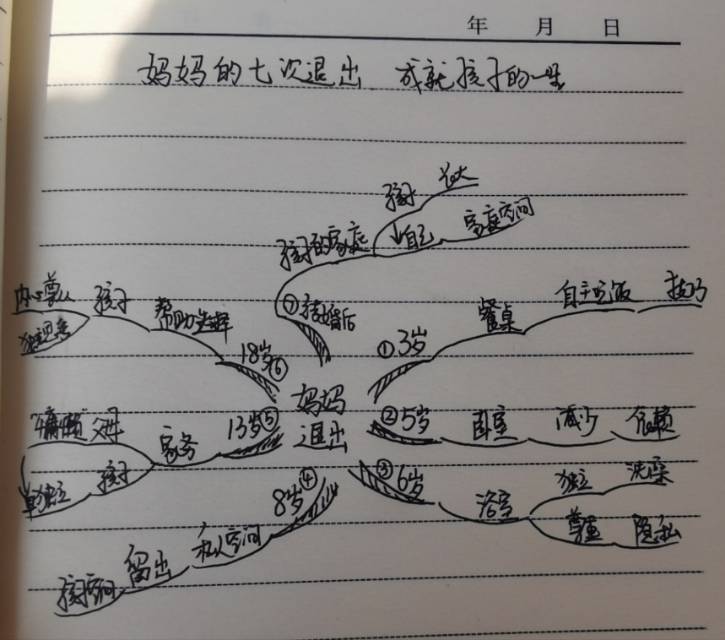 年 月 日
妈妈的七次退出 成就孩子的一生
妈妈
退出
①3岁 餐桌 自主吃饭 技巧
②5岁 卧室 减少 依赖
③6岁 浴室
独立 洗澡
尊重 隐私
④8岁 私人空间 留出 孩子空间
⑤13岁 家务
"慵懒" 父母
孩子 独立
⑥18岁 帮助选择 孩子
内心
独立思考
⑦结婚后 孩子的家庭
孩子 长大
自己 家庭空间